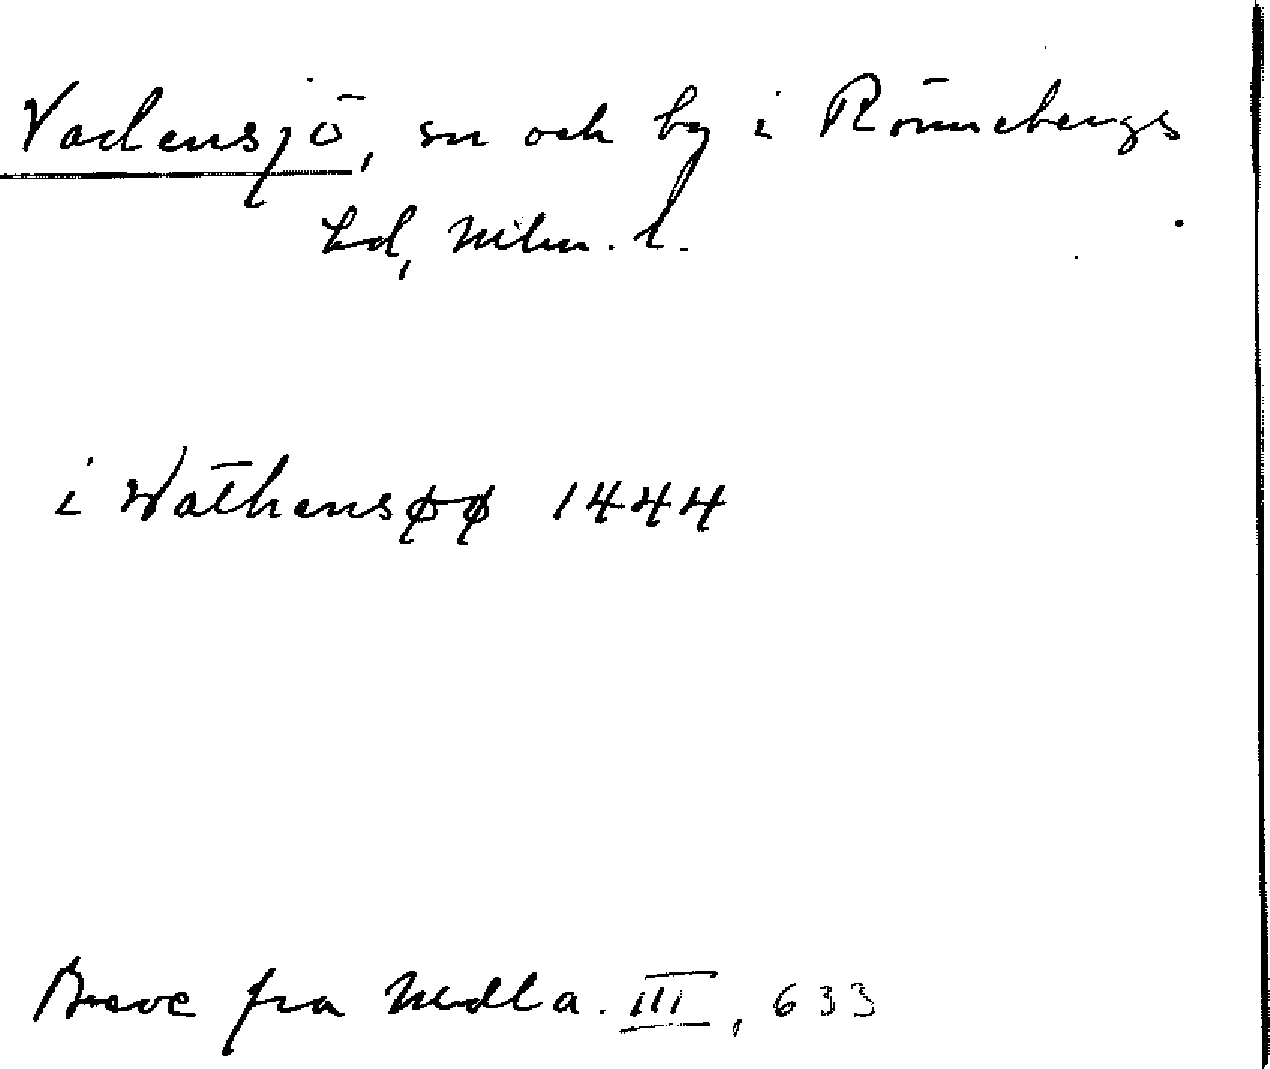 Vadensjö, sn och by i Rönnebergs
hd, Mlm. l.
i Wathensøø 1444
Breve fra Mdla. III, 633